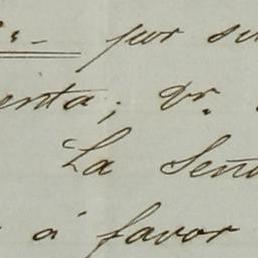 por su
enta; Dr.
La Seño
á favor